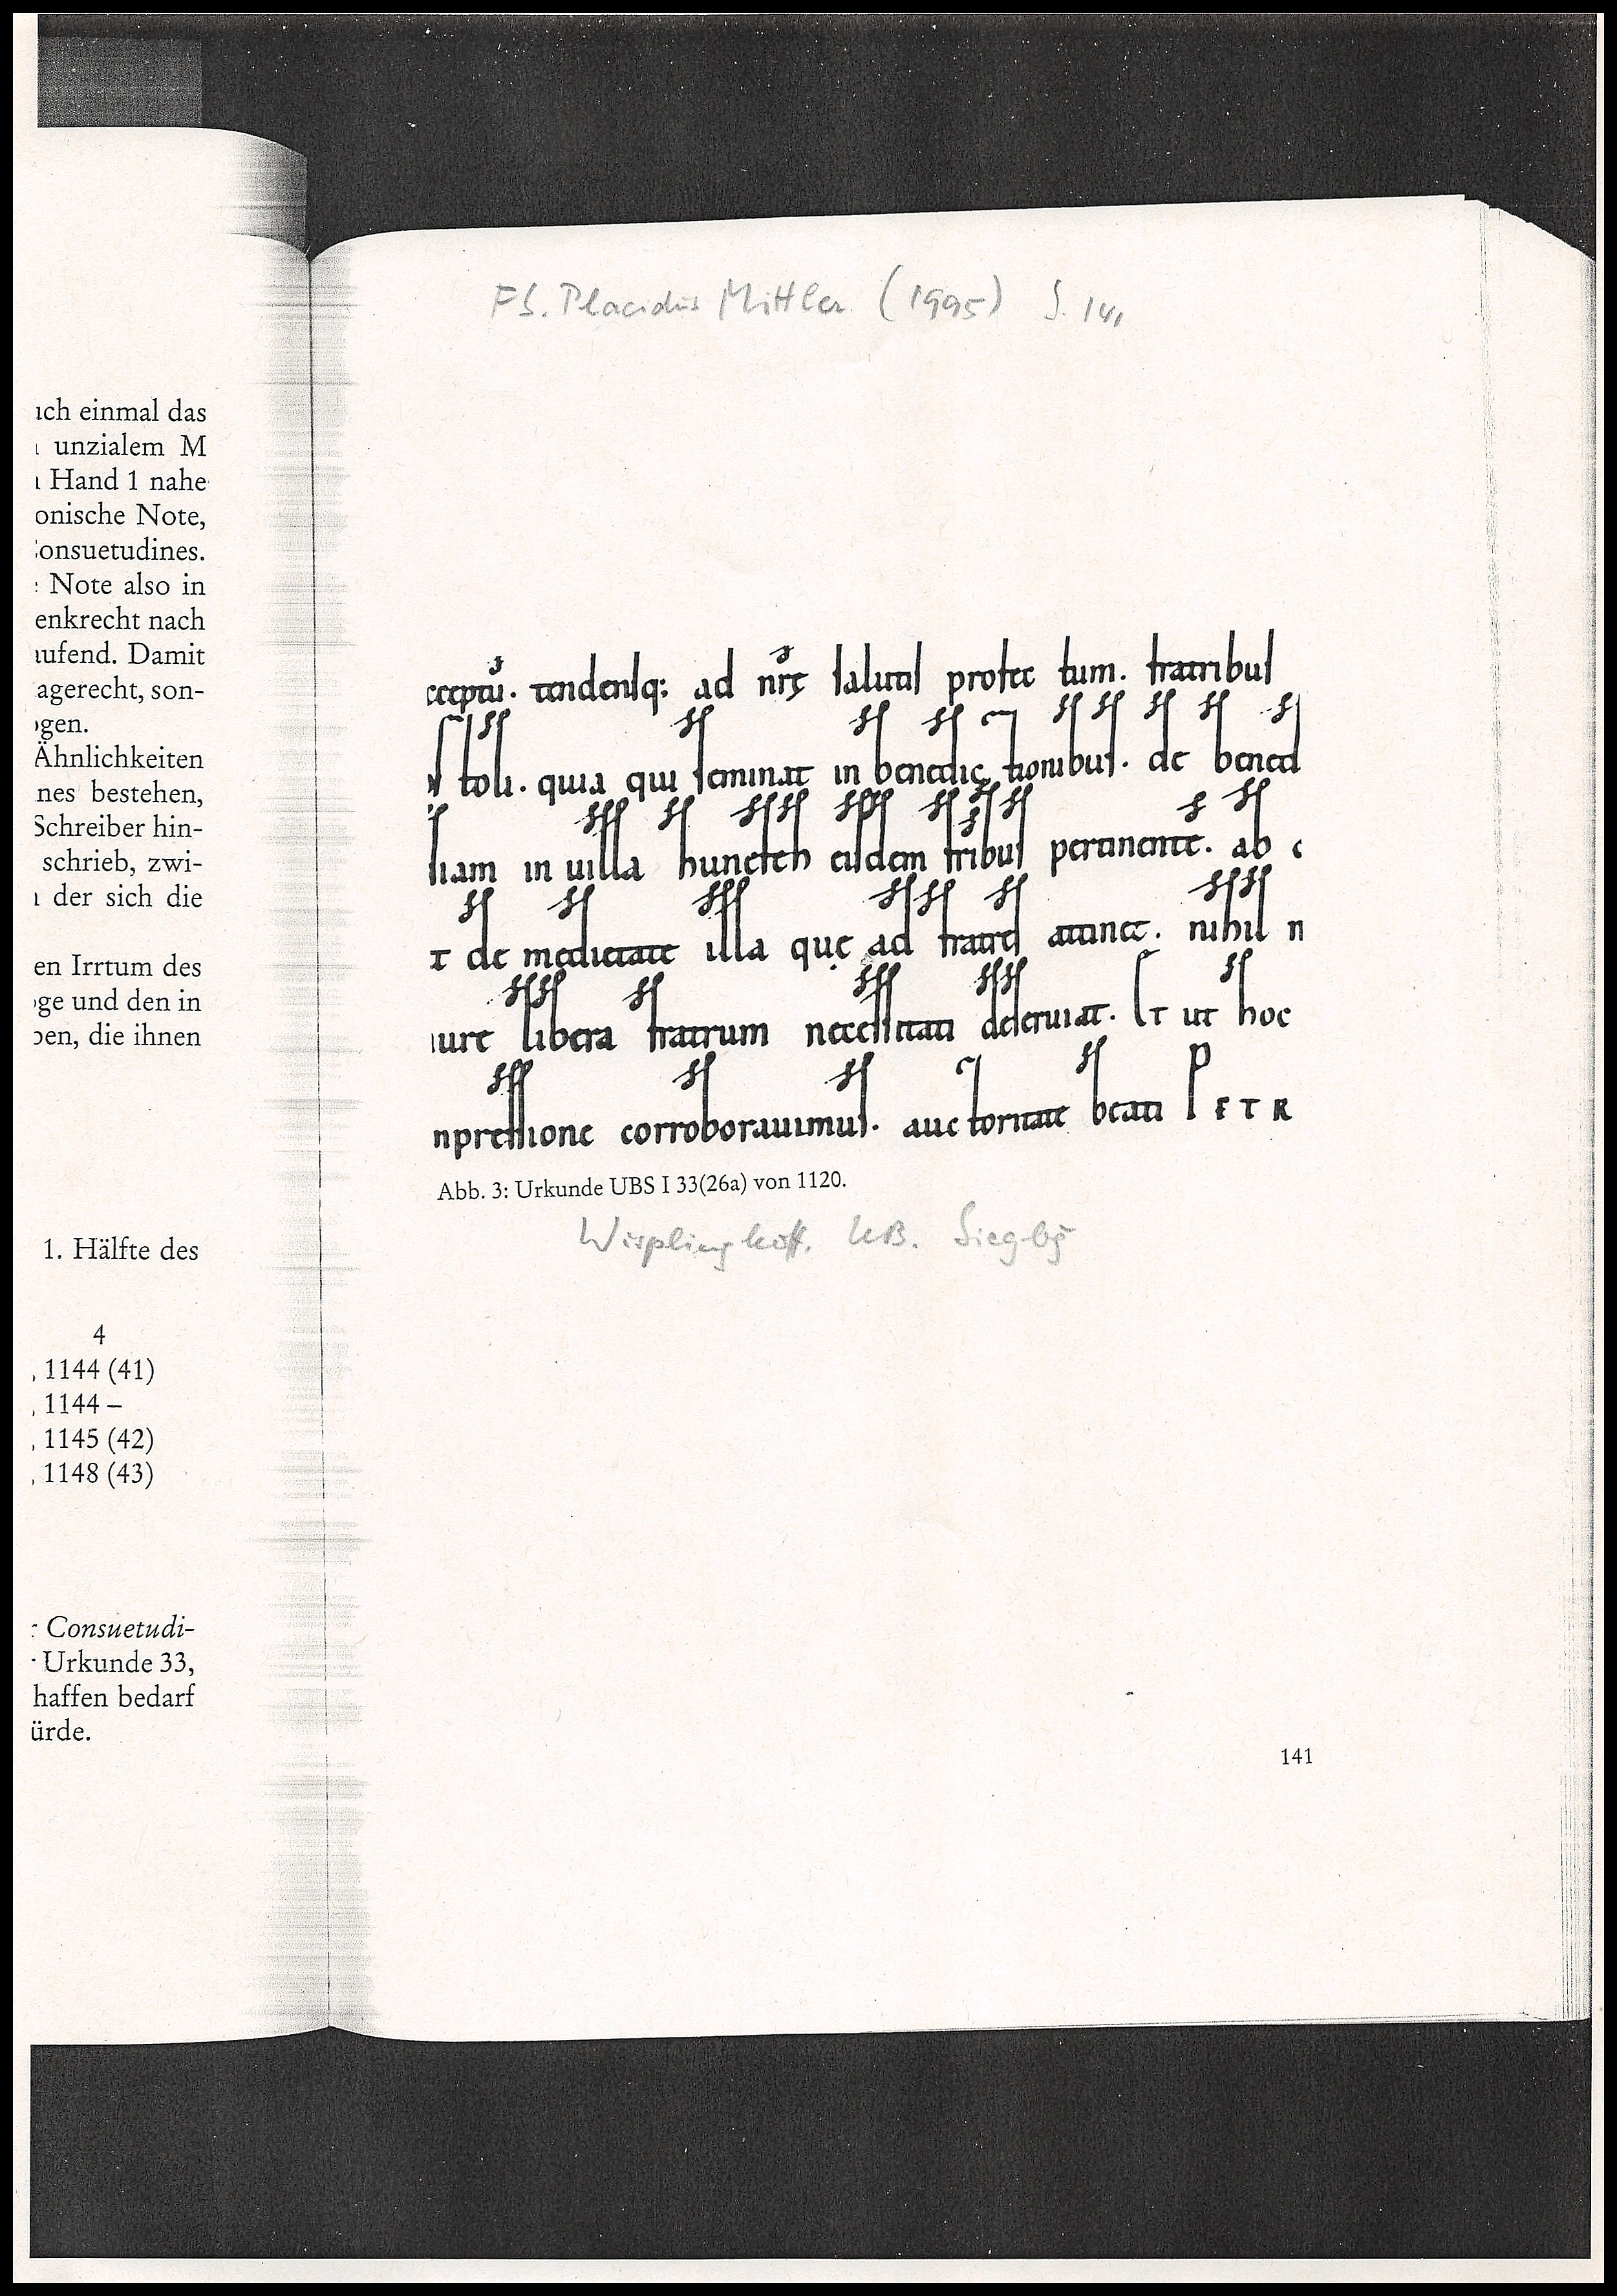 ich einmal das
unzialem M
Hand 1 nahe
onische Note,
onsuetudines.
: Note also in
enkrecht nach
ufend. Damit
agerecht, son-
gen.
Ähnlichkeiten
nes bestehen,
Schreiber hin-
schrieb, zwi-
der sich die
en Irrtum des
ge und den in
ben, die ihnen
1. Hälfte des
4
, 1144 (41)
, 1144 –
, 1145 (42)
, 1148 (43)
: Consuetudi-
Urkunde 33,
haffen bedarf
ürde.
FS. Placidus Mittler (1995) S. 141
cceptū. tendenſq; ad nr̄ę ſalutiſ profec tum. fratribuſ
ſtoli. quia qui ſeminat in benedic tionibuſ. de bened
liam in uilla hunefeh eiſdem fribuſ pertinente. ab
t de medietate illa quę ad fratreſ attinet. nihil n
iure libera fratrum neceſſitati deſeruiat. Et ut hoc
npreſſione corroborauimuſ. auctoritate beati PETR
Abb. 3: Urkunde UBS I 33(26a) von 1120.
Wisplinghoff, UB. Siegbg
141